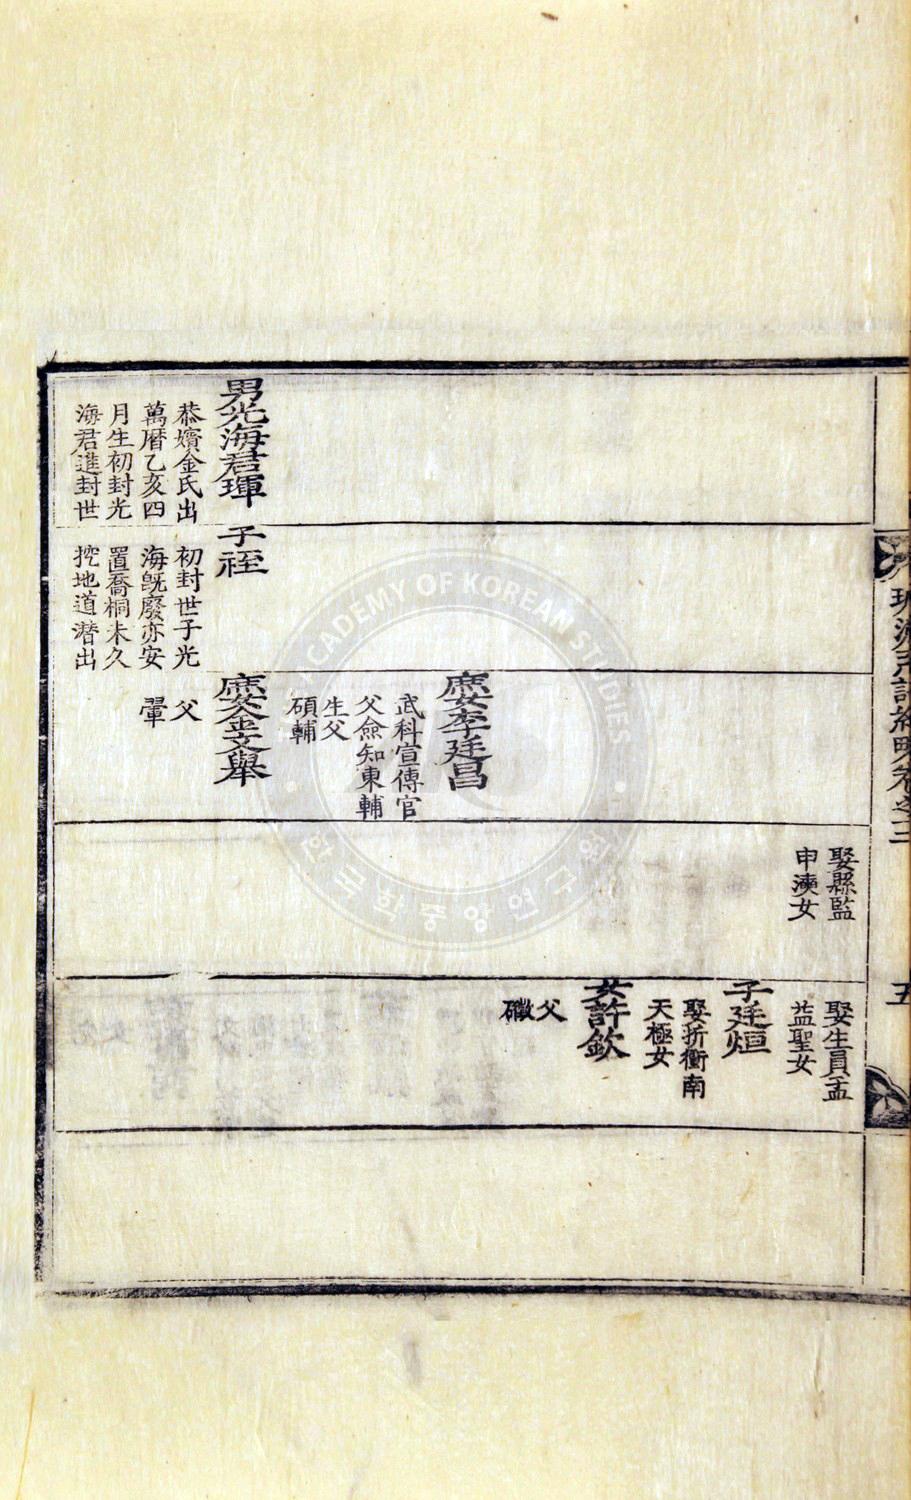 娶縣監
申湙女
娶生員孟
益聖女
子廷烜
娶折衝南
天極女
女許欽
父
礉
庶女李廷昌
武科宣傳官
父僉知東輔
生父
碩輔
庶女金文擧
父
翬
男光海君琿
恭嬪金氏出
萬曆乙亥四
月生初封光
海君進封世
子祬
初封世子光
海旣廢亦安
置喬桐未久
挖地道潛出
五
ACADEMY OF KOREAN STUDIES
한국학중앙연구원